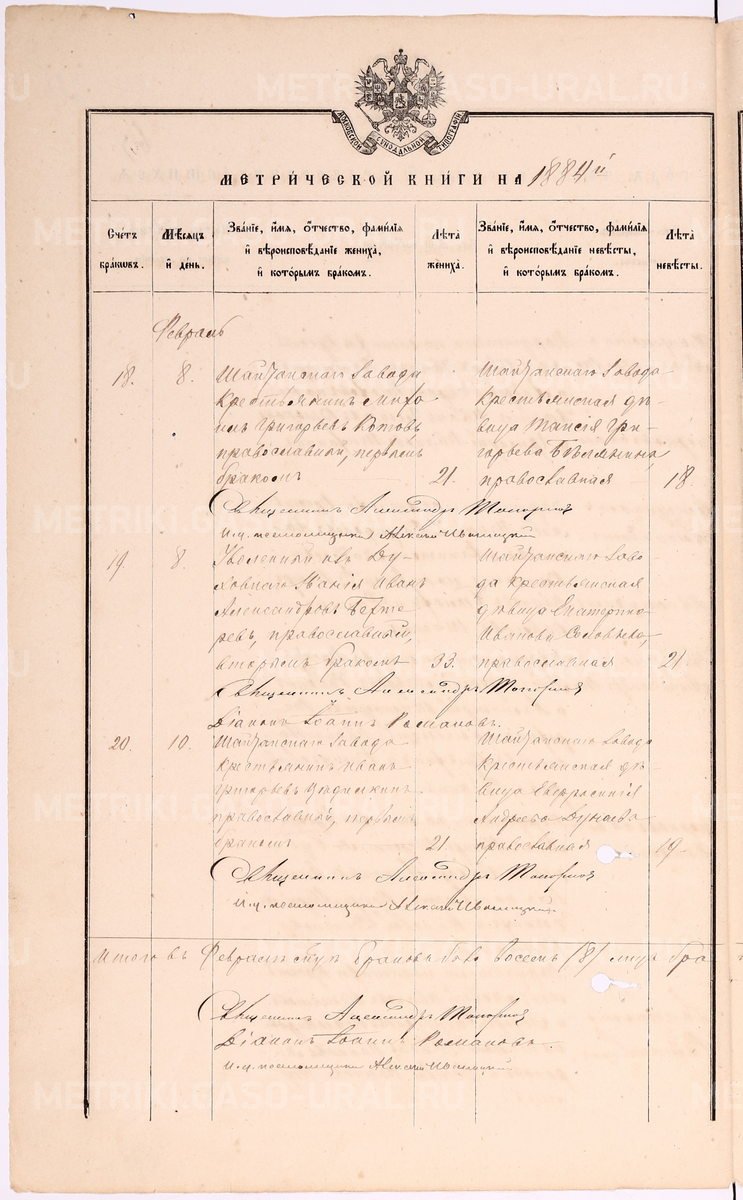 МЕТРИ́ЧЕСКОЙ КНИ́ГИ НА 1884й
Сче́тъ бра́ковъ.
Мѣ́сяцъ и҆ де́нь.
Зва́нїе, и҆́мя, ѻ҆́тчество, фами́лїя и҆ вѣроисповѣ́данїе жениха̀, и҆ кото́рымъ бра́комъ.
Лѣ́та жениха̀.
Зва́нїе, и҆́мя, ѻ҆́тчество, фами́лїя и҆ вѣроисповѣ́данїе невѣ́сты, и҆ кото́рымъ бра́комъ.
Лѣ́та невѣ́сты.
Февраль
18. 8. Шайтанскаго завода
крестьянинъ
Григорьевъ Котовъ
православный, первымъ
бракомъ 21.
Шайтанскаго завода
крестьянская дѣ-
вица Таисія Гри-
горьева
православная 18.
Священникъ Александръ Топорковъ
И.д. псаломщика Алексѣй
19 8. Уволенный изъ Ду-
ховнаго званія Иванъ
Александровъ Бехте-
ревъ, православный,
вторымъ бракомъ 33.
Шайтанскаго заво-
да крестьянская
дѣвица Екатерина
Иванова
православная 21
Священникъ Александръ Топорковъ
Діаконъ Іоаннъ Романовъ.
20. 10. Шайтанскаго завода
крестьянинъ Иванъ
Григорьевъ
православный, первымъ
бракомъ 21.
Шайтанскаго завода
крестьянская дѣ-
вица Евфросинія
Андреева Дунаева
православная 19
Священникъ Александръ Топорковъ
И.д. псаломщика Алексѣй
Итого въ Февралѣ браковъ восемь (8)
Священникъ Александръ Топорковъ
Діаконъ Іоаннъ Романовъ.
И.д. псаломщика Алексѣй
METRIKI.GASO-URAL.RU